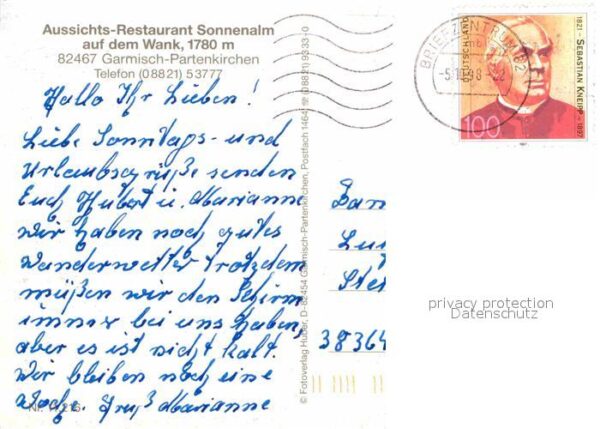 Aussichts-Restaurant Sonnenalm
auf dem Wank, 1780 m
82467 Garmisch-Partenkirchen
Telefon (08821) 53777
Hallo Ihr Lieben!
Liebe Sonntags- und
Urlaubsgrüße senden
Euch Hubert u. Marianne
wir haben noch gutes
Wanderwetter trotzdem
müßen wir den Schirm
immer bei uns haben,
aber es ist nicht kalt.
Wir bleiben noch eine
Woche. Gruß Marianne
© Fotoverlag Huber, D-82454 Garmisch-Partenkirchen, Postfach 1464, ☏ (08821) 9333-0
BRIEFZENTRUM 82
DEUTSCHLAND
1821 - SEBASTIAN KNEIPP - 1897
100
38364
privacy protection
Datenschutz